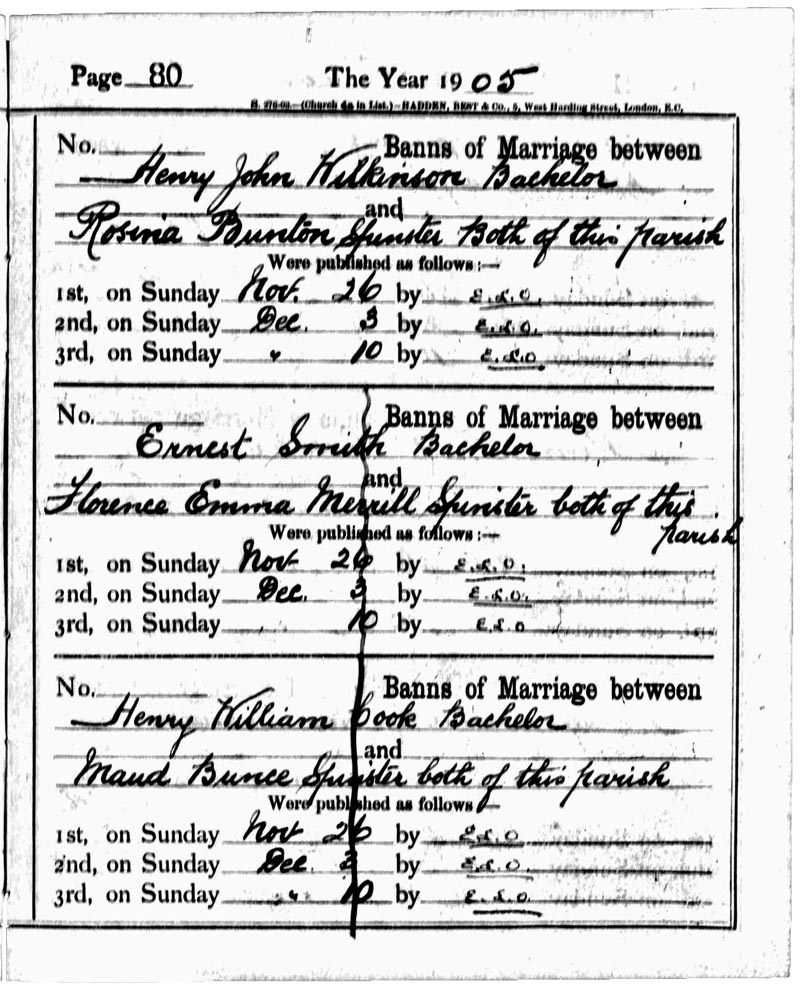 Page 80 The Year 1905
S. 276-03.—(Church 4a in List.)—HADDEN, BEST & Co., 5, West Harding Street, London, E.C.
No. Banns of Marriage between
Henry John Wilkinson Bachelor
and
Rosina Bunton Spinster Both of this parish
Were published as follows:—
1st, on Sunday Nov. 26 by E.L.O.
2nd, on Sunday Dec. 3 by E.L.O.
3rd, on Sunday " 10 by E.L.O
No. Banns of Marriage between
Ernest Smith Bachelor
and
Florence Emma Merrill Spinster both of this
parish
Were published as follows:—
1st, on Sunday Nov 26 by E.L.O.
2nd, on Sunday Dec. 3 by E.L.O.
3rd, on Sunday 10 by E.L.O
No. Banns of Marriage between
Henry William Cook Bachelor
and
Maud Bunce Spinster both of this parish
Were published as follows
1st, on Sunday Nov 26 by E.L.O
2nd, on Sunday Dec. 3 by E.L.O.
3rd, on Sunday " 10 by E.L.O.